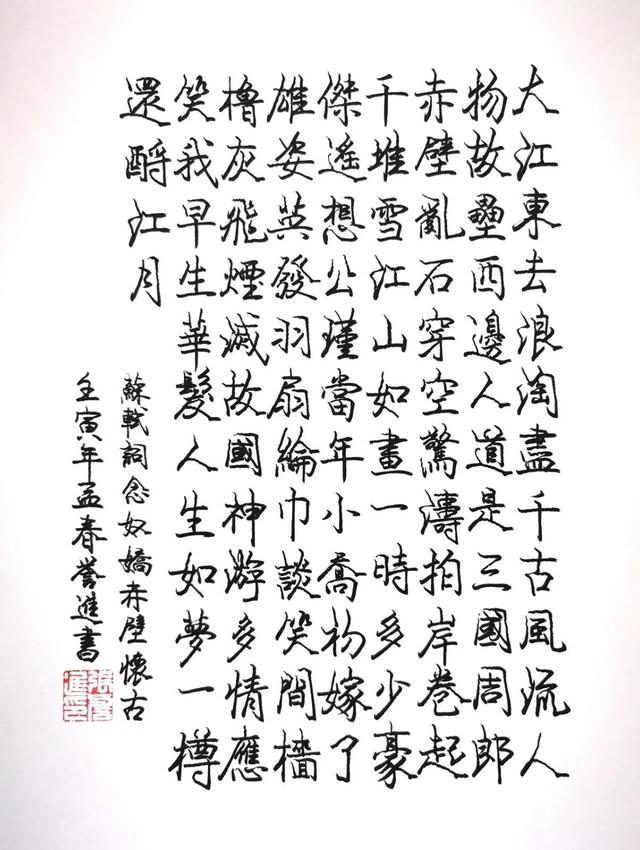 大江東去浪淘盡千古風流人
物故壘西邊人道是三國周郎
赤壁亂石穿空驚濤拍岸卷起
千堆雪江山如畫一時多少豪
傑遙想公瑾當年小喬初嫁了
雄姿英發羽扇綸巾談笑間檣
櫓灰飛煙滅故國神游多情應
笑我早生華髮人生如夢一樽
還酹江月
蘇軾詞念奴嬌赤壁懷古
壬寅年孟春誉進書